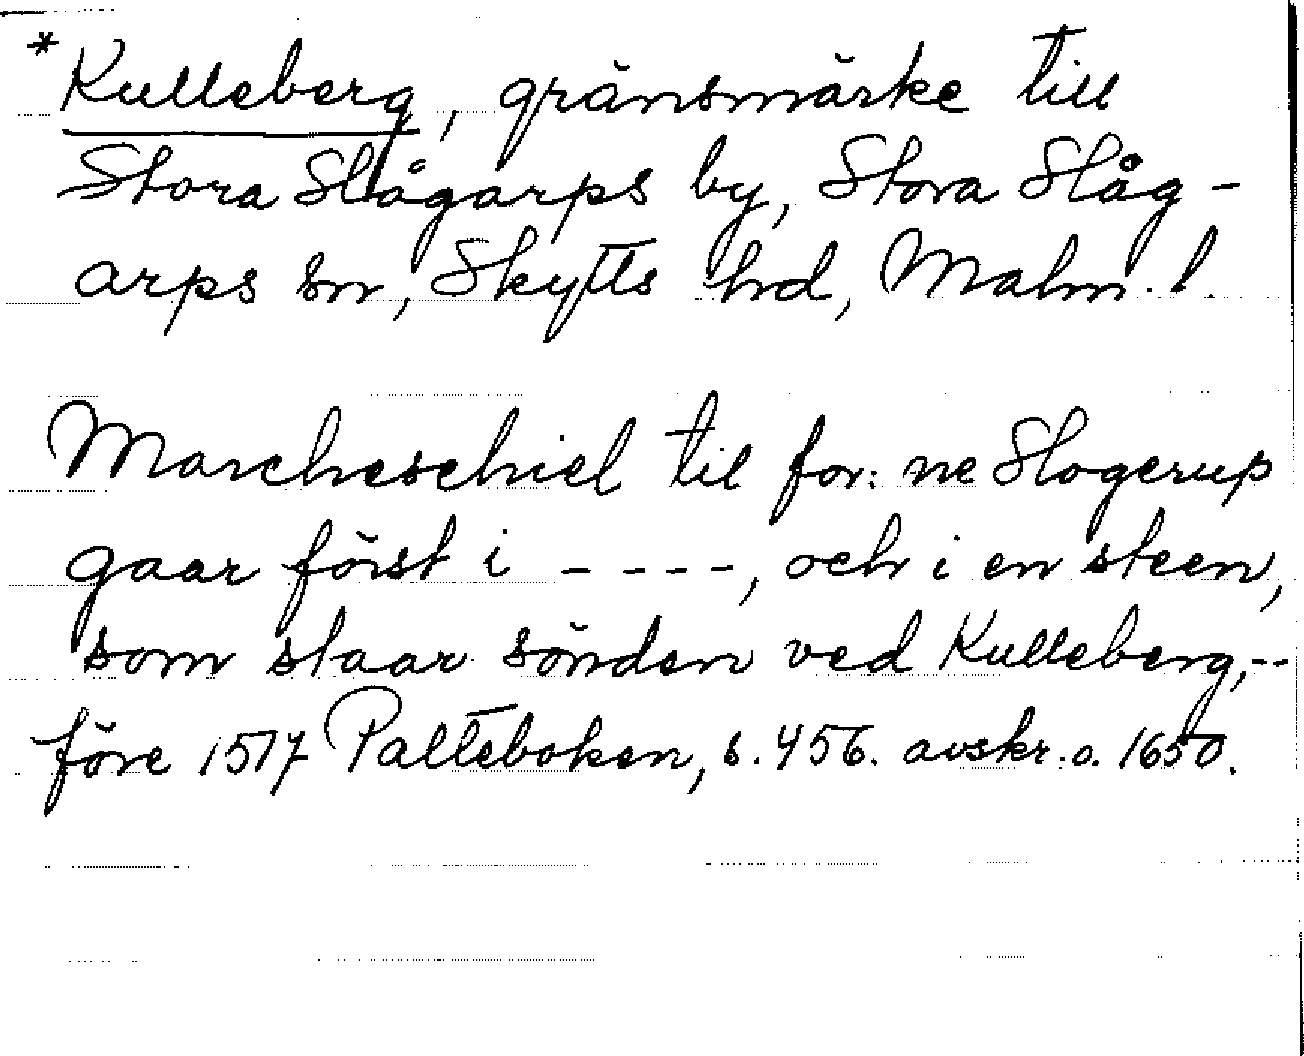 *Kulleberg, gränsmärke till
Stora Slågarps by, Stora Slåg-
arps sn, Skytts hd, Malm. l.
Marcheschiel til for: ne Slogerup
gaar först i - - - -, och i en steen,
som staar sönden ved Kulleberg,--
före 1517 Palteboken, s. 456. avskr. o. 1650.